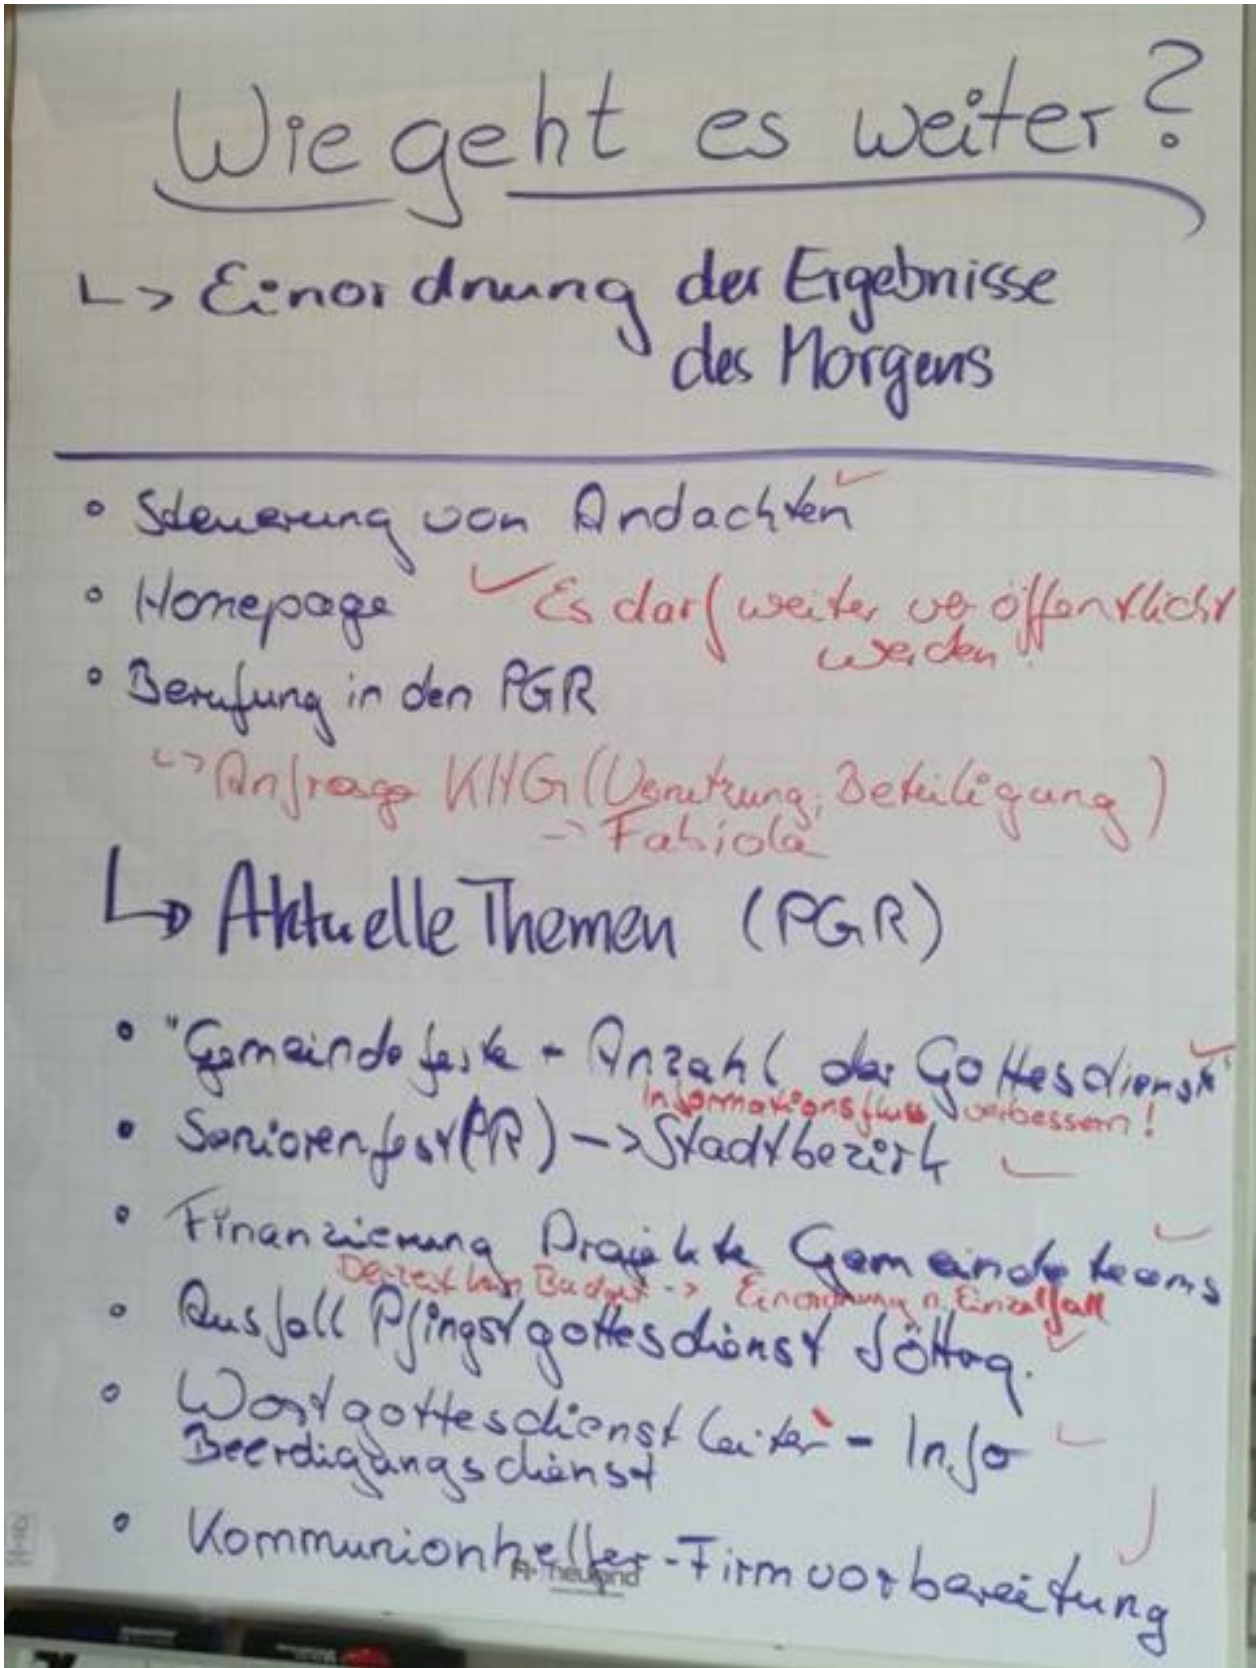 Wie geht es weiter?
↳ Einordnung der Ergebnisse
des Morgens
• Steuerung von Andachten ✓
• Homepage ✓ Es darf weiter veröffentlicht
werden!
• Berufung in den PGR
↳ Anfrage KHG (Vernetzung, Beteiligung)
-> Fabiola
↳ Aktuelle Themen (PGR)
• "Gemeindefeste - Anzahl der Gottesdienste" ✓
Informationsfluss verbessern!
• Seniorenfest (PR) -> Stadtbezirk ✓
• Finanzierung Projekte Gemeindeteams ✓
Derzeit kein Budget -> Einordnung n. Einzelfall
• Ausfall Pfingstgottesdienst ✓
• Wortgottesdienstleiter - Info ✓
Beerdigungsdienst
• Kommunionhelfer - Firmvorbereitung
neuland